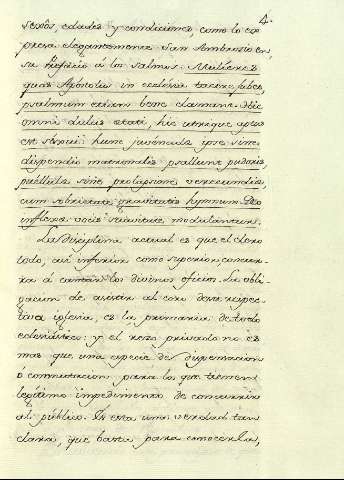 4.
sexôs, edades y condiciones, como lo ex
presa elegantemente San Ambrosio en
su Prefacio á los Salmos. Mulieres
quas Apostolus in eclesia tacere jubet,
psalmum etiam bene clamant. Hic
omni dulcis etati, hic utrique aptus
est sexui: hunc juvencule ipse sine
dispendio matronalis psallunt pudoris,
puellule sine prolapsione verecundie,
cum sobrietate gravitatis hymnum Deo
inflexe vocis suavitate modulantur.
La disciplina actual es que el clero
todo, asi inferior como superior concur
ra á cantar los divinos oficios. La obli
gacion de asistir al coro de su respec
tiva iglesia, es la primaria de todo
eclesiástico: y el rezo privado no es
mas que una especie de dispensacion
ó conmutacion para los que tienen
legítimo impedimento de concurrir
al público. Es esta una verdad tan
clara, que basta para conocerla,